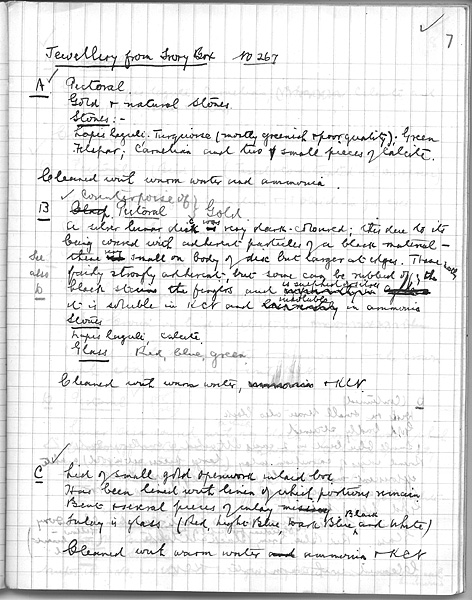 7
Jewellery from Ivory Box No 267
A Pectoral.
Gold & natural stones.
Stones:-
Lapis lazuli. Turquoise (mostly greenish & poor quality); Green
Felspar; Carnelian and two small pieces of calcite.
Cleaned with warm water and ammonia.
Counterpoise of
B Pectoral Gold.
A silver lunar disk was very dark-coloured; this due to its
being covered with adherent particles of a black material -
these small on body of disc but larger at edges. These
See also D
fairly strongly adherent, but some can be rubbed off; the
black the fingers and is sulphide of silver
it is soluble in KCN and insoluble in ammonia
Stones
Lapis lazuli, calcite.
Glass Red, blue, green.
Cleaned with warm water, ammonia & KCN
C Lid of small gold openwork inlaid box
Has been lined with linen of which portions remain
Bent several pieces of inlay missing
Inlay is glass (Red, Light Blue, Dark Blue, Black and White)
Cleaned with warm water and ammonia & KCN